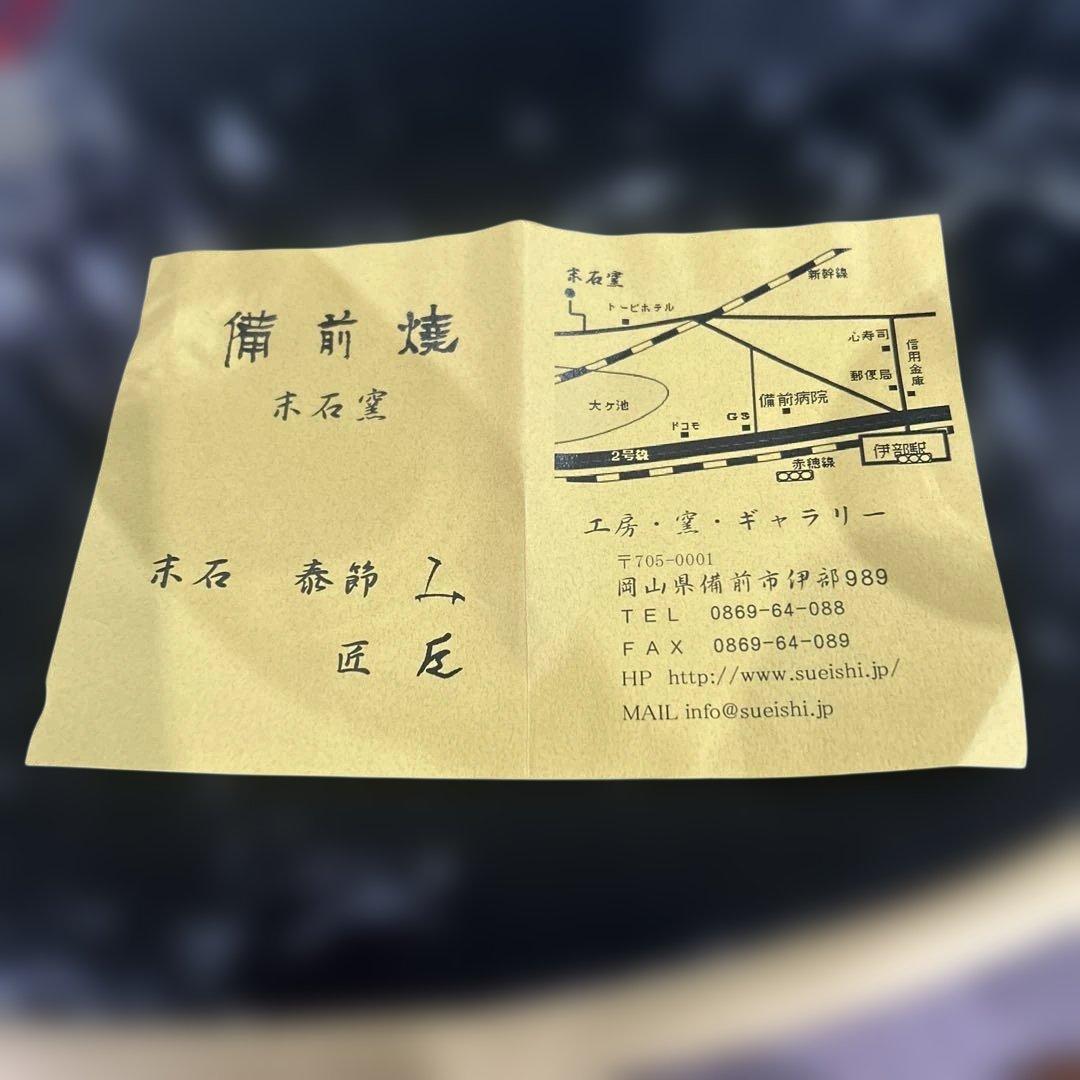 備前燒
末石窯
末石 泰節
匠
末石窯
新幹線
トービホテル
心寿司
信用金庫
郵便局
大ヶ池
備前病院
GS
ドコモ
2号線
伊部駅
赤穂線
工房・窯・ギャラリー
〒705-0001
岡山県備前市伊部989
TEL 0869-64-088
FAX 0869-64-089
HP http://www.sueishi.jp/
MAIL info@sueishi.jp